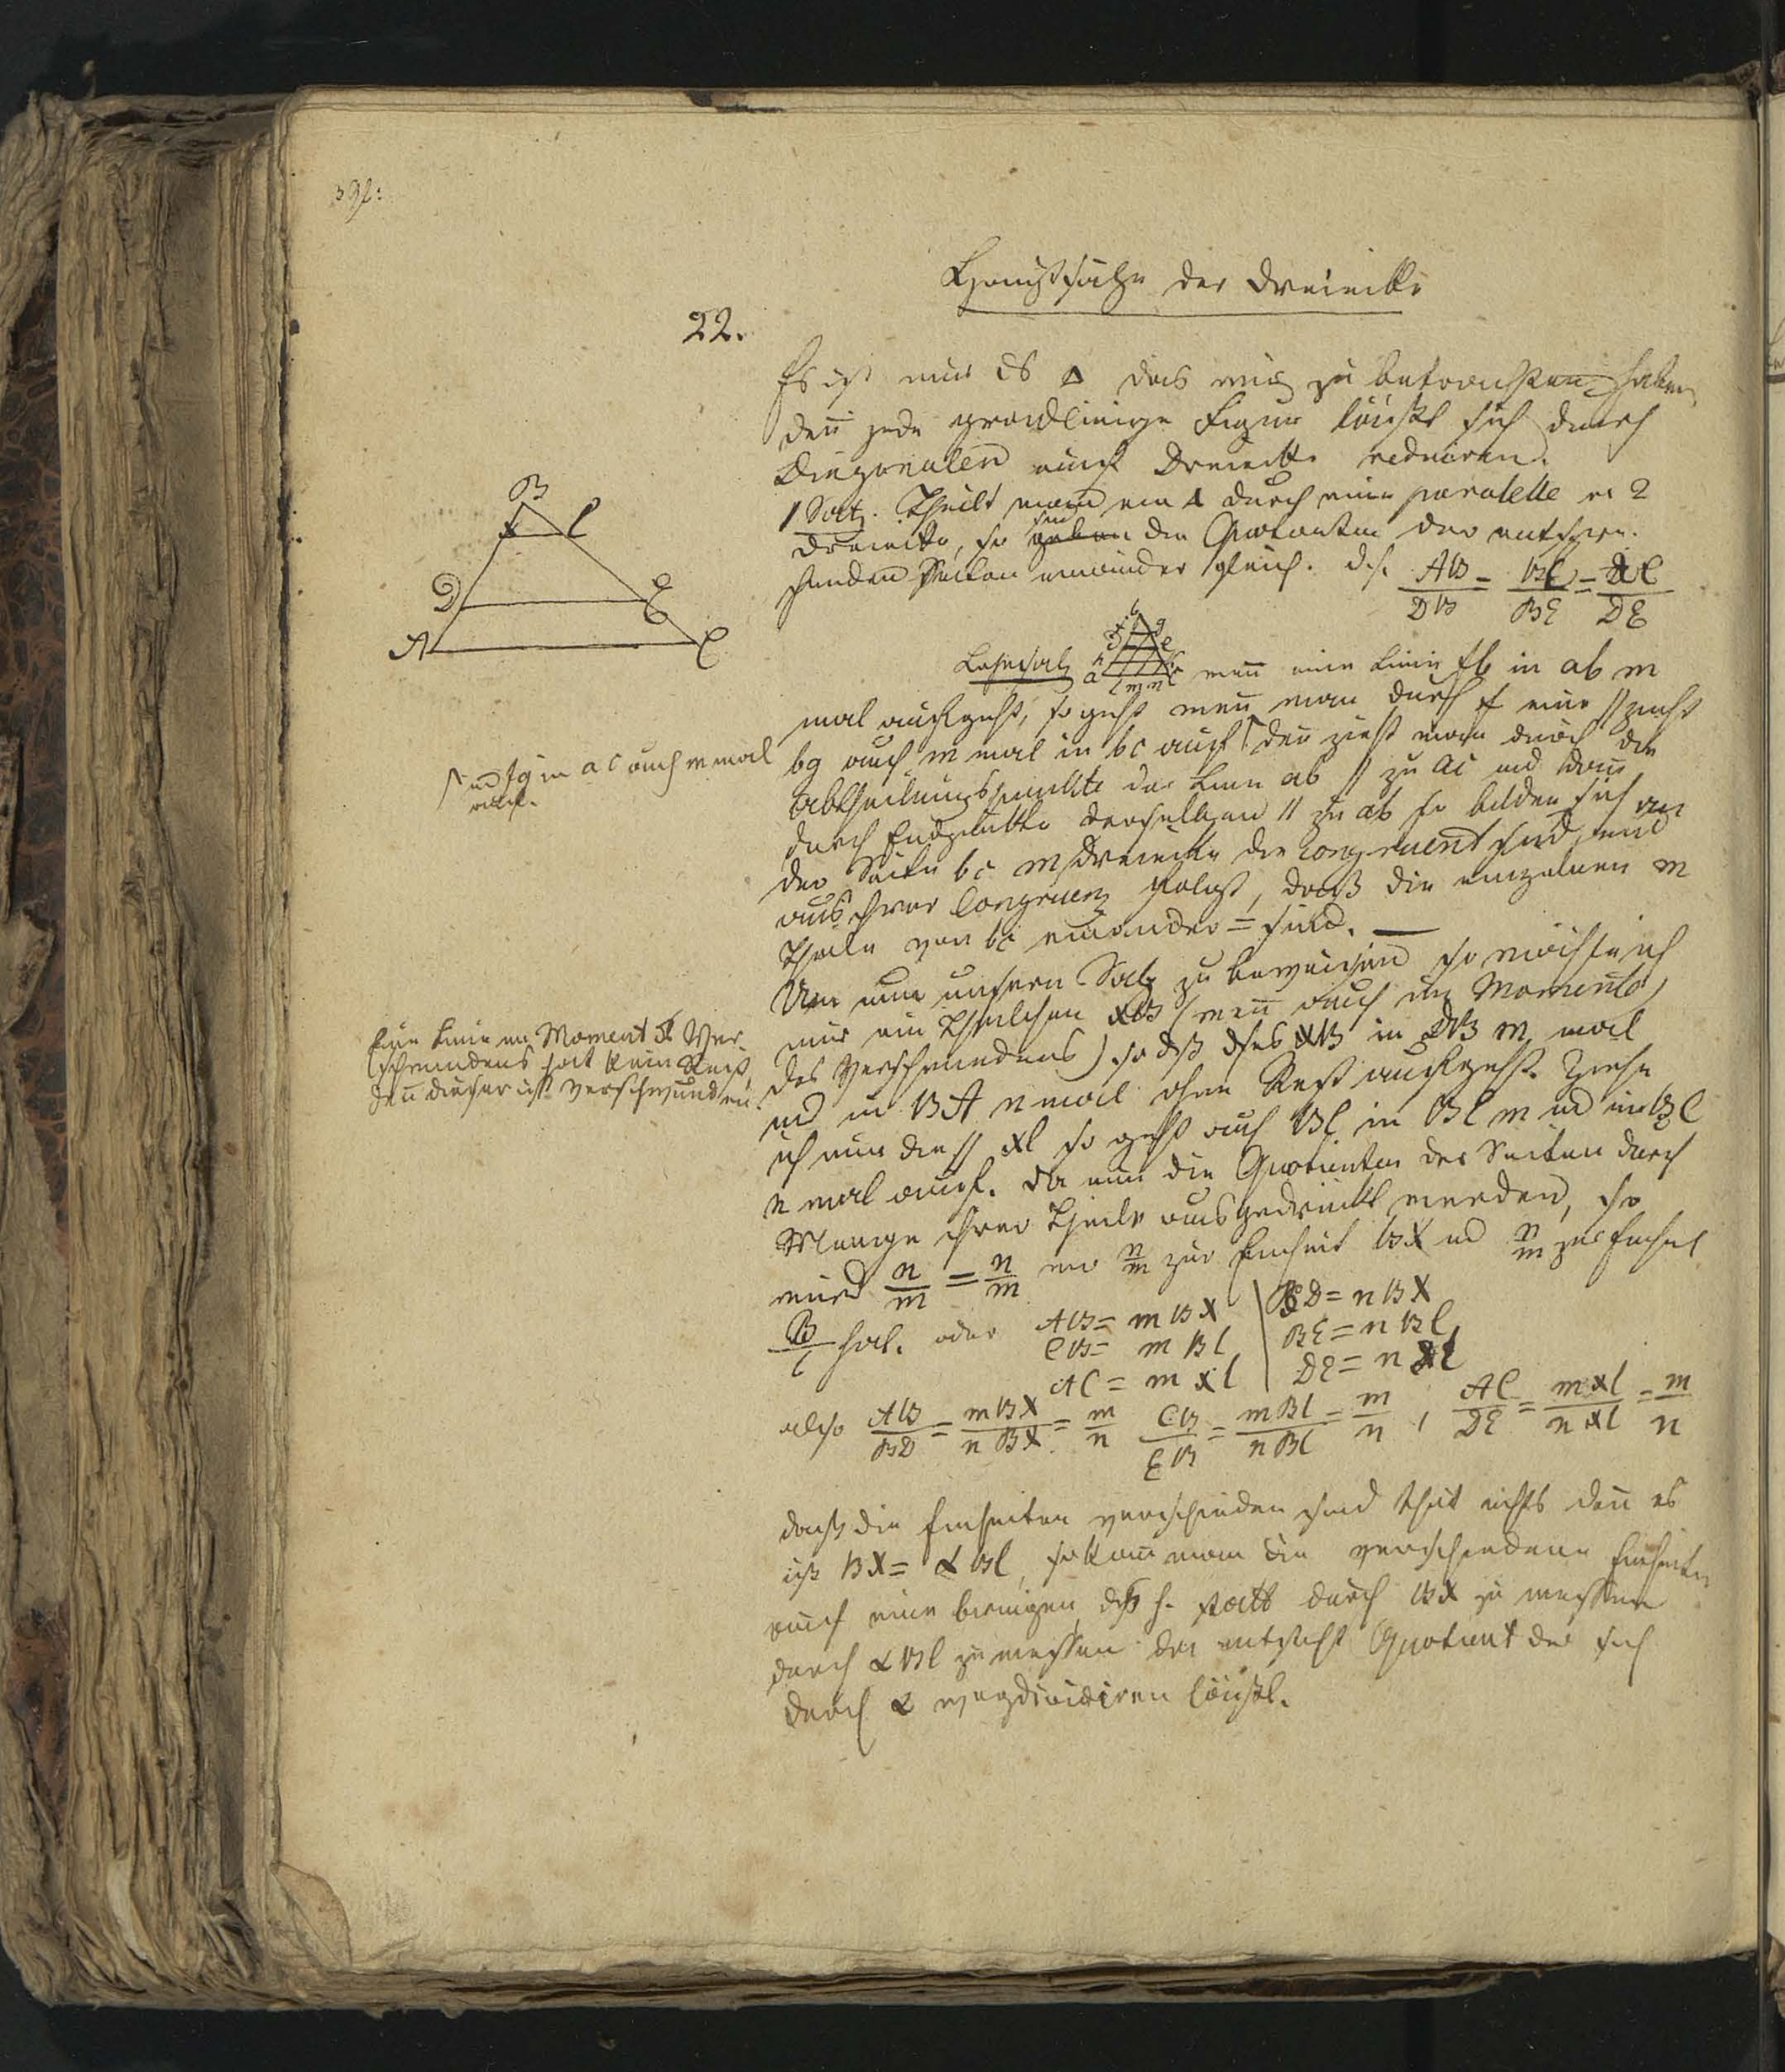 392:
Hauptsätze der Dreiecke
22.
Es ist nur das Δ das wir zu betrachten haben
denn jede gradlinige Figur läßt sich durch
Diagonalen auf Dreiecke reduciren.
1 Satz. Theilt man ein Δ durch eine paralelle in 2
Dreiecke, so sind die Quotienten der entspre-
chenden Seiten einander gleich. d.h. AB/DB = BC/BE = AC/DE
B
x l
D E
A C
Lehrsatz wenn eine Linie fb in ab m
mal aufgeht, so geht wenn man durch f eine // zieht
bg auch m mal in bc auf denn zieht man durch die
Abtheilungspunkte der Linie ab // zu ac und dann
durch Endpunkte derselben // zu ab so bilden sich an
der Seite bc m Dreiecke die congruent sind und
aus ihrer Congruenz folgt, daß die einzelnen m
Theile von bc einander = sind. —
und fg in ac auch m mal
auf.
Um nun unsern Satz zu beweisen so nehme ich
mir ein Theilchen xB (wenn auch im Momente
des Verschwindens) so daß xB in DB m mal
und in BA n mal ohne Rest aufgeht. Ziehe
ich nun die // xl so geht auch Bl in BE m und in BC
n mal auf. Da nun die Quotienten der Seiten durch
Menge ihrer Theile ausgedrückt werden, so
wird n/m = n/m wo n/m zur Einheit Bx und n/m zur Einheit
Eine Linie im Moment des Ver-
schwindens hat kein Rest,
denn dieser ist verschwunden.
hat. oder AB = m Bx | BD = n Bx
CB = m Bl | BE = n Bl
AC = m xl | DE = n xl
also AB/BD = mBx/nBx = m/n CB/EB = mBl/nBl = m/n, AC/DE = mxl/nxl = m/n
daß die Einheiten verschieden sind thut nichts denn es
ist Bx = α Bl, so kann man die verschiedenen Einheiten
auf eine bringen, d.h. statt durch Bx zu messen
durch α Bl zu messen der entsteht Quotient der sich
durch α wegdividiren läßt.